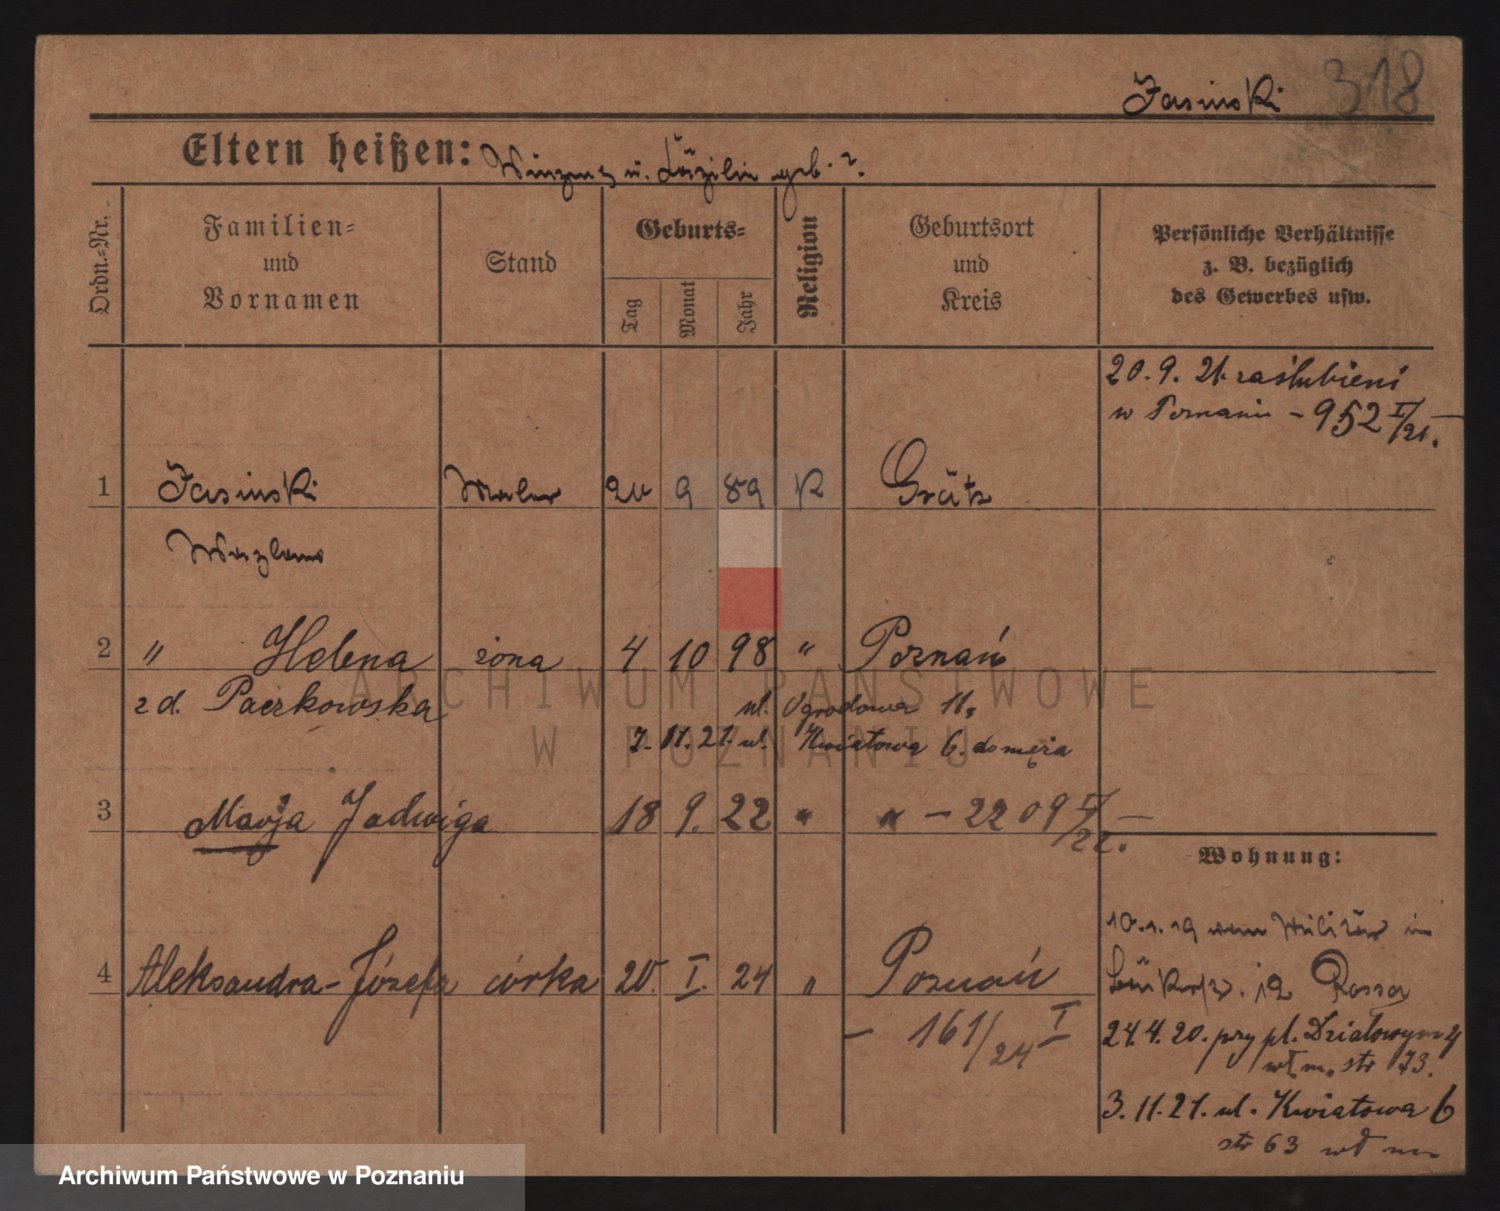 Jasinski 318
Eltern heißen: Winzent u. Cäzilie geb. ?.
Ordn.-Nr.
Familien- und Vornamen
Stand
Geburts-
Tag
Monat
Jahr
Religion
Geburtsort und Kreis
Persönliche Verhältnisse z. B. bezüglich des Gewerbes usw.
20. 9. 21. zaślubieni
w Poznaniu - 952 I/21.
1 Jasinski Maler 20 9 89 K Grätz
Wazlaw
2 " Helena żona 4 10 98 " Poznań
z d. Paczkowska ul. Ogrodowa 11,
7. 11. 21. ul. Kwiatowa 6. do męża
3 Marja Jadwiga 18 9. 22 " " - 2209 IV/22.
Wohnung:
10. 1. 19 vom Militär in
12
4 Aleksandra-Józefa córka 20. I. 24 " Poznań
- 161/24 I
24. 4. 20. przy pl. Działowym 4
wł. m. str 73.
3. 11. 21. ul. Kwiatowa 6
str 63 wł m
ARCHIWUM PAŃSTWOWE
W POZNANIU
Archiwum Państwowe w Poznaniu